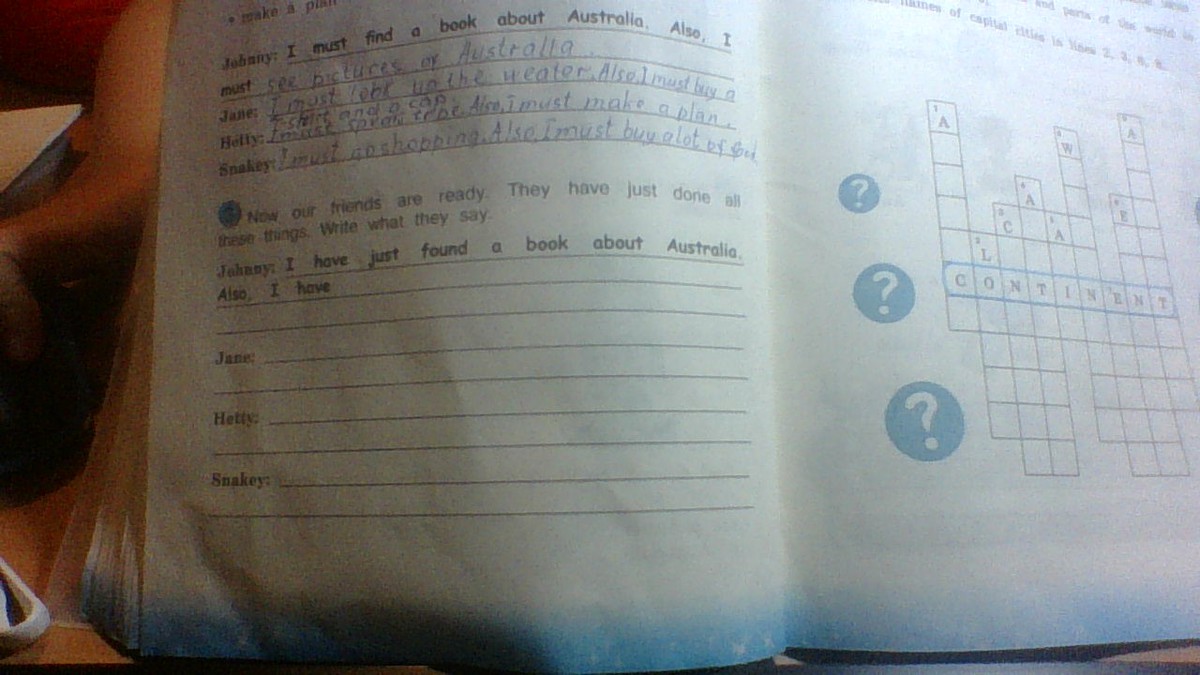 • make a plan
Johnny: I must find a book about Australia. Also, I
must see pictures of Australia.
Jane: I must look up the weater. Also, I must buy a
T-shirt and a cap.
Hetty: I must Also, i must make a plan.
Snakey: I must go shopping. Also, I must buy a lot of
Now our friends are ready. They have just done all
these things. Write what they say.
Johnny: I have just found a book about Australia.
Also, I have
Jane:
Hetty:
Snakey:
and parts of the world in
names of capital cities in lines 2, 3,
A
W
A
A
C
A
E
L
CONTINENT
?
?
?